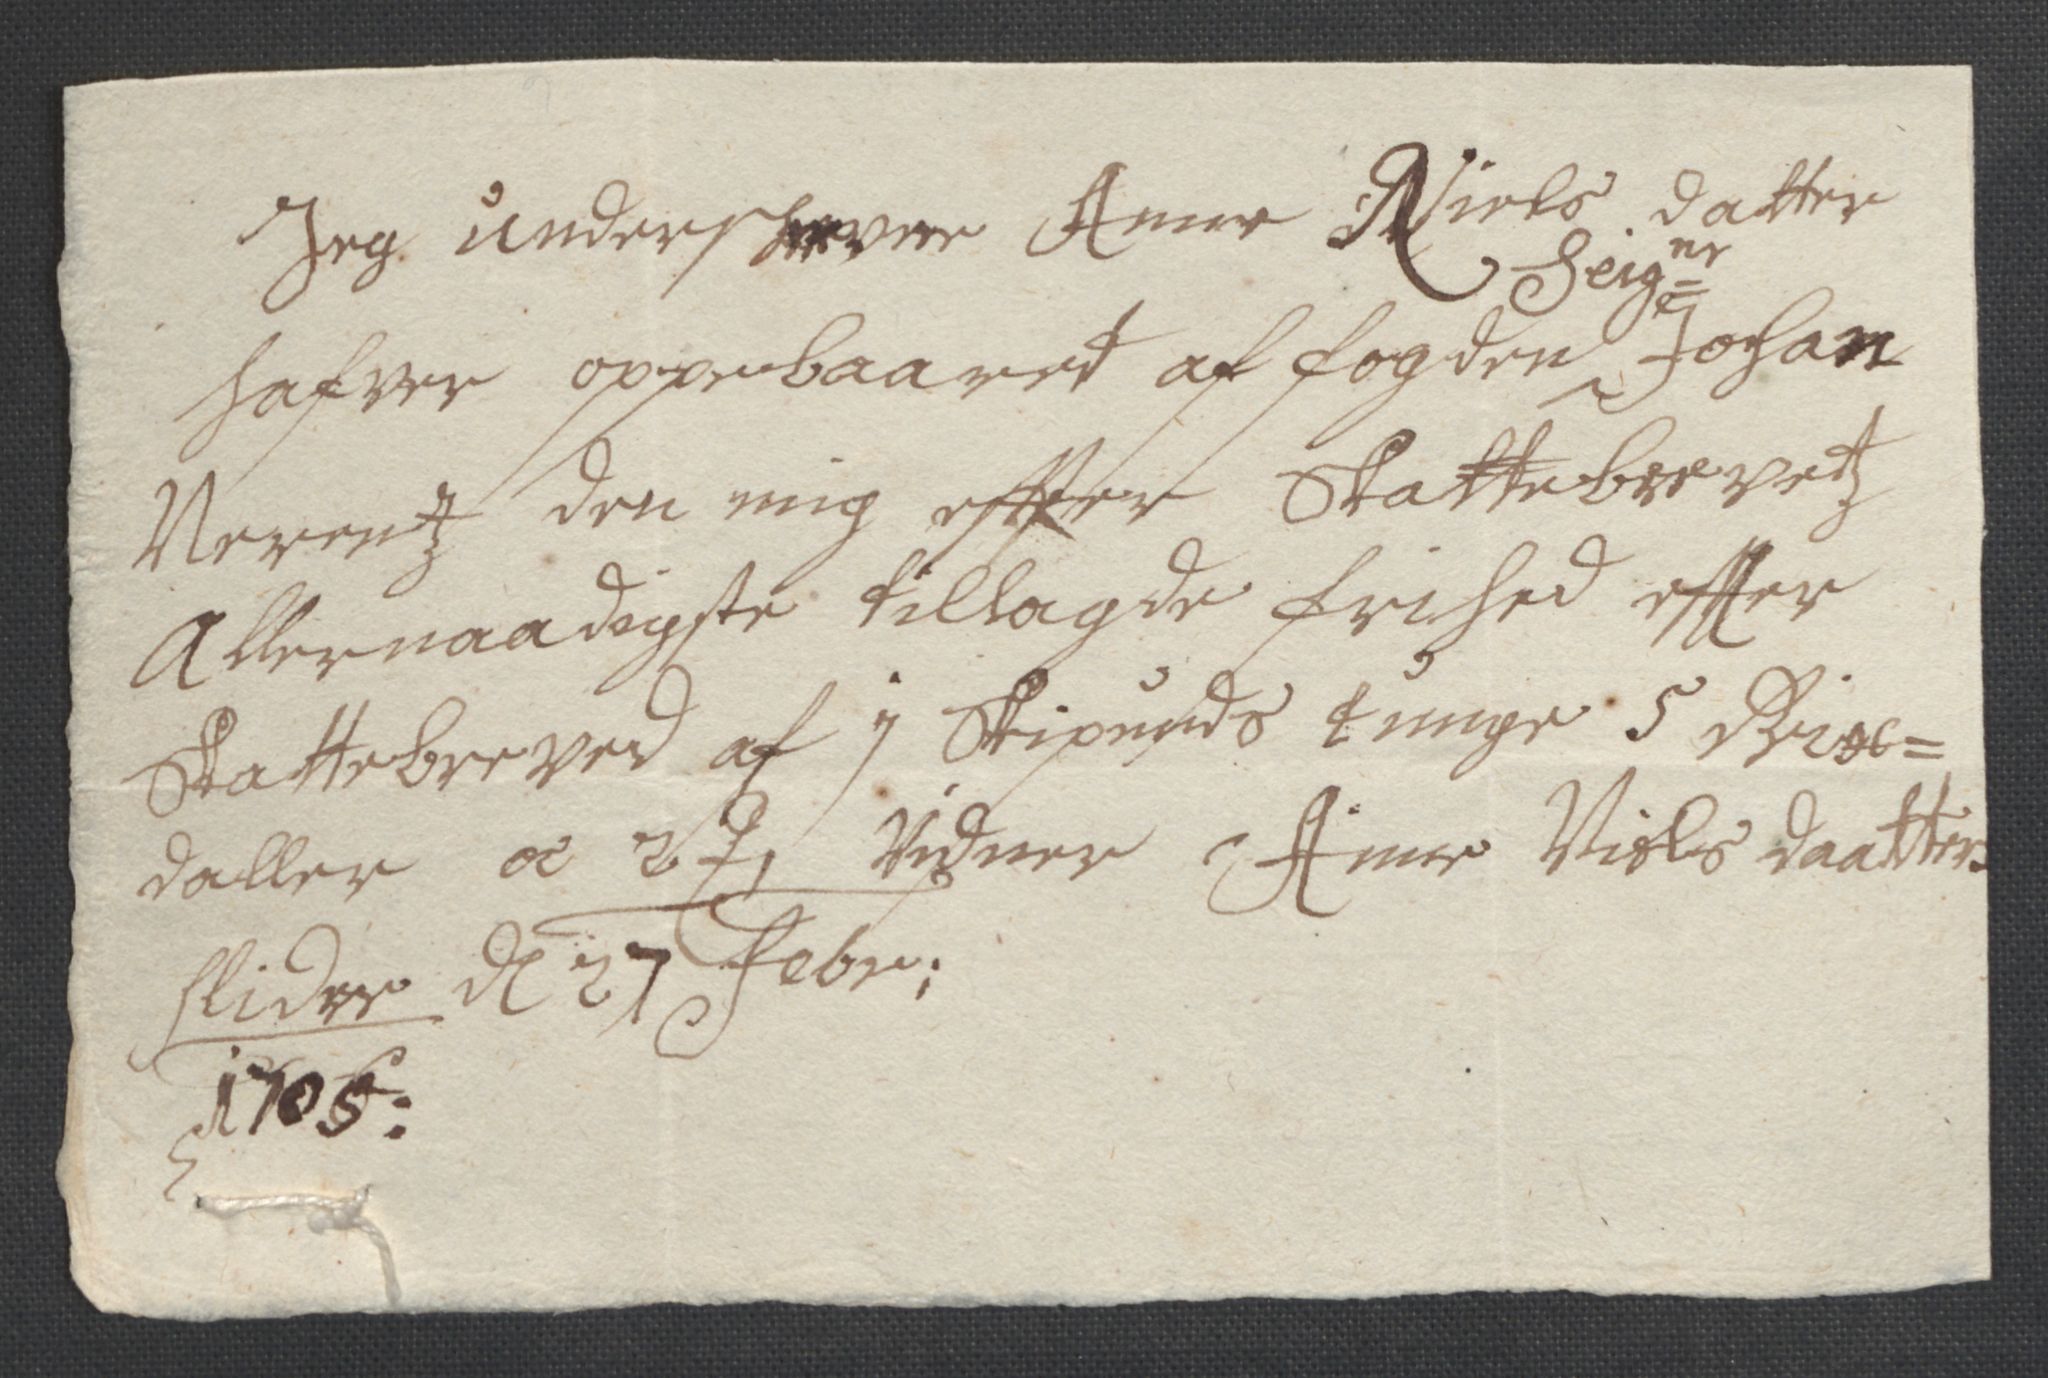 Jeg underschrevne Anne Niels datter
hafver oppebaaret af fogden Seig.ne Johan
Verentz den mig effter Skattebrevetz
Allernaadigste tillagde frihed effter
Skattebreved af j Skipunds tunge 5 Rix=
daller oc 2 Vidner Anne Niels daatter
Slidre dl 27 Febr:
1705: